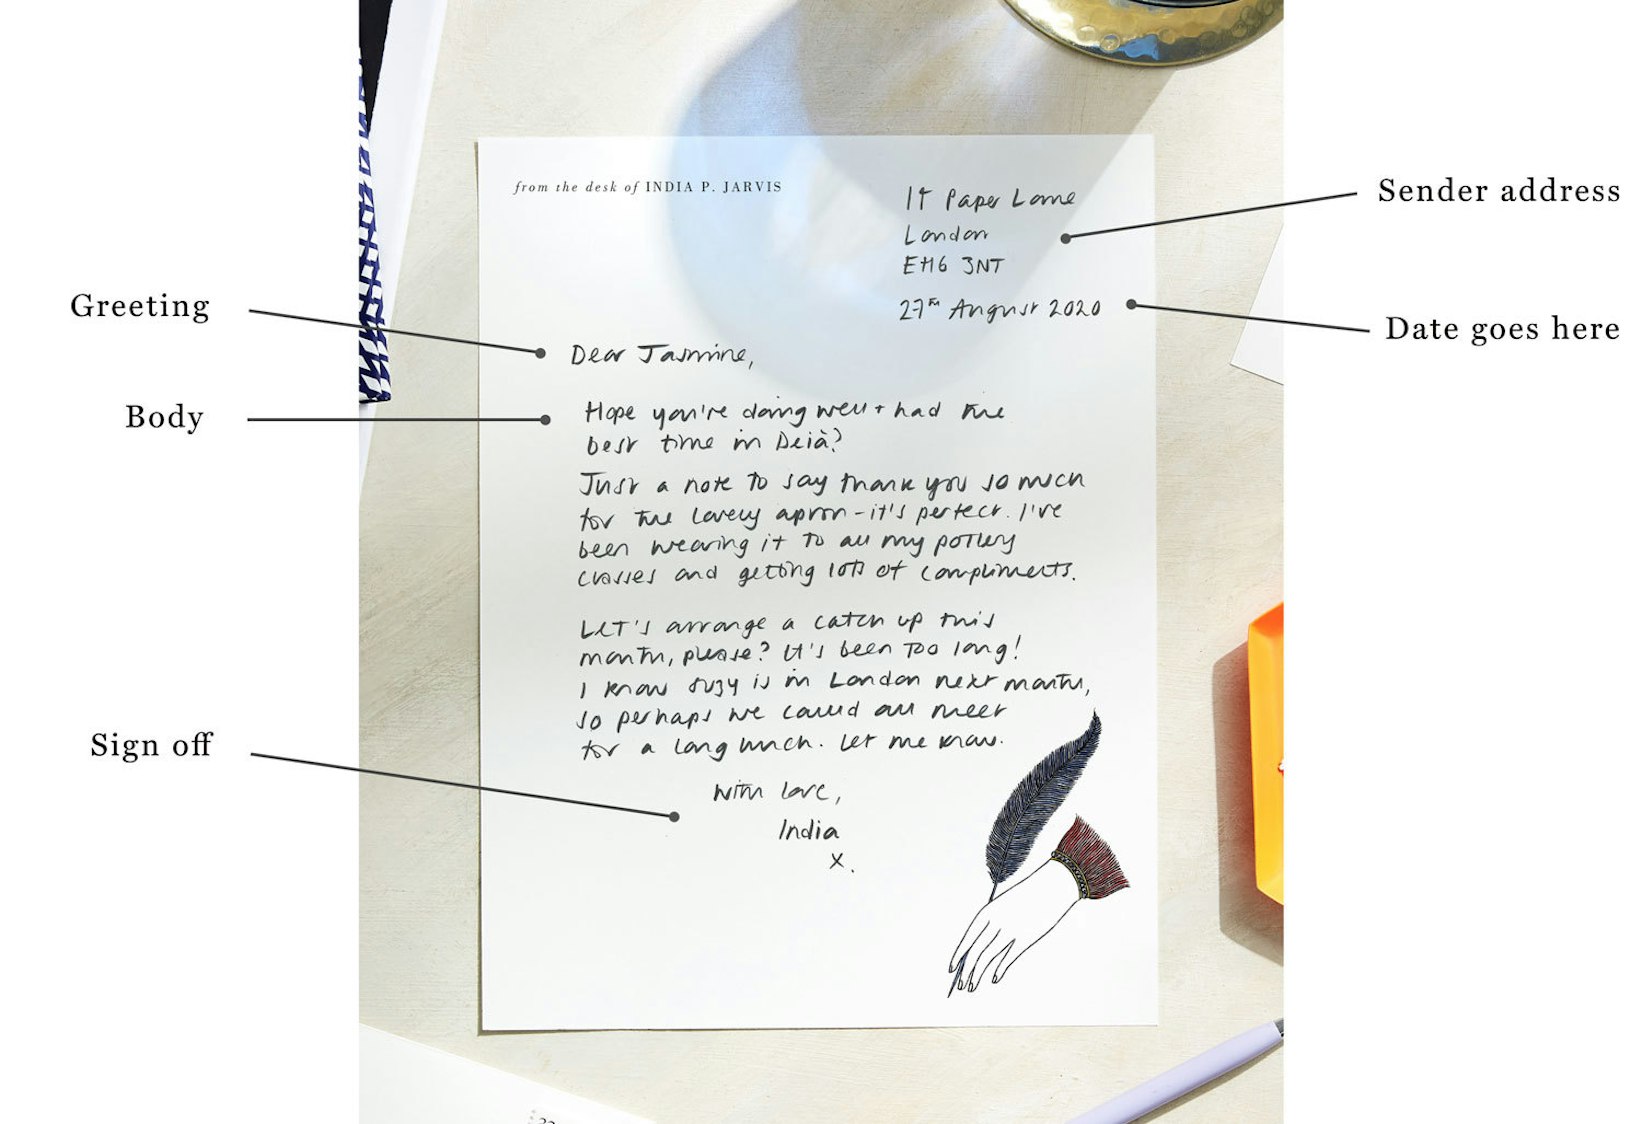 from the desk of INDIA P. JARVIS
Sender address
Paper Lane
London
EH6 3NT
Date goes here
27th August 2020
Greeting
Dear Jasmine,
Body
Hope you're doing well + had the
best time in Deià?
Just a note to say thank you so much
for the lovely apron - it's perfect. I've
been wearing it to all my pottery
classes and getting lots of compliments.
Let's arrange a catch up this
month, please? It's been too long!
I know Suzy is in London next month,
so perhaps we could all meet
for a long lunch. Let me know.
Sign off
With love,
India
x.